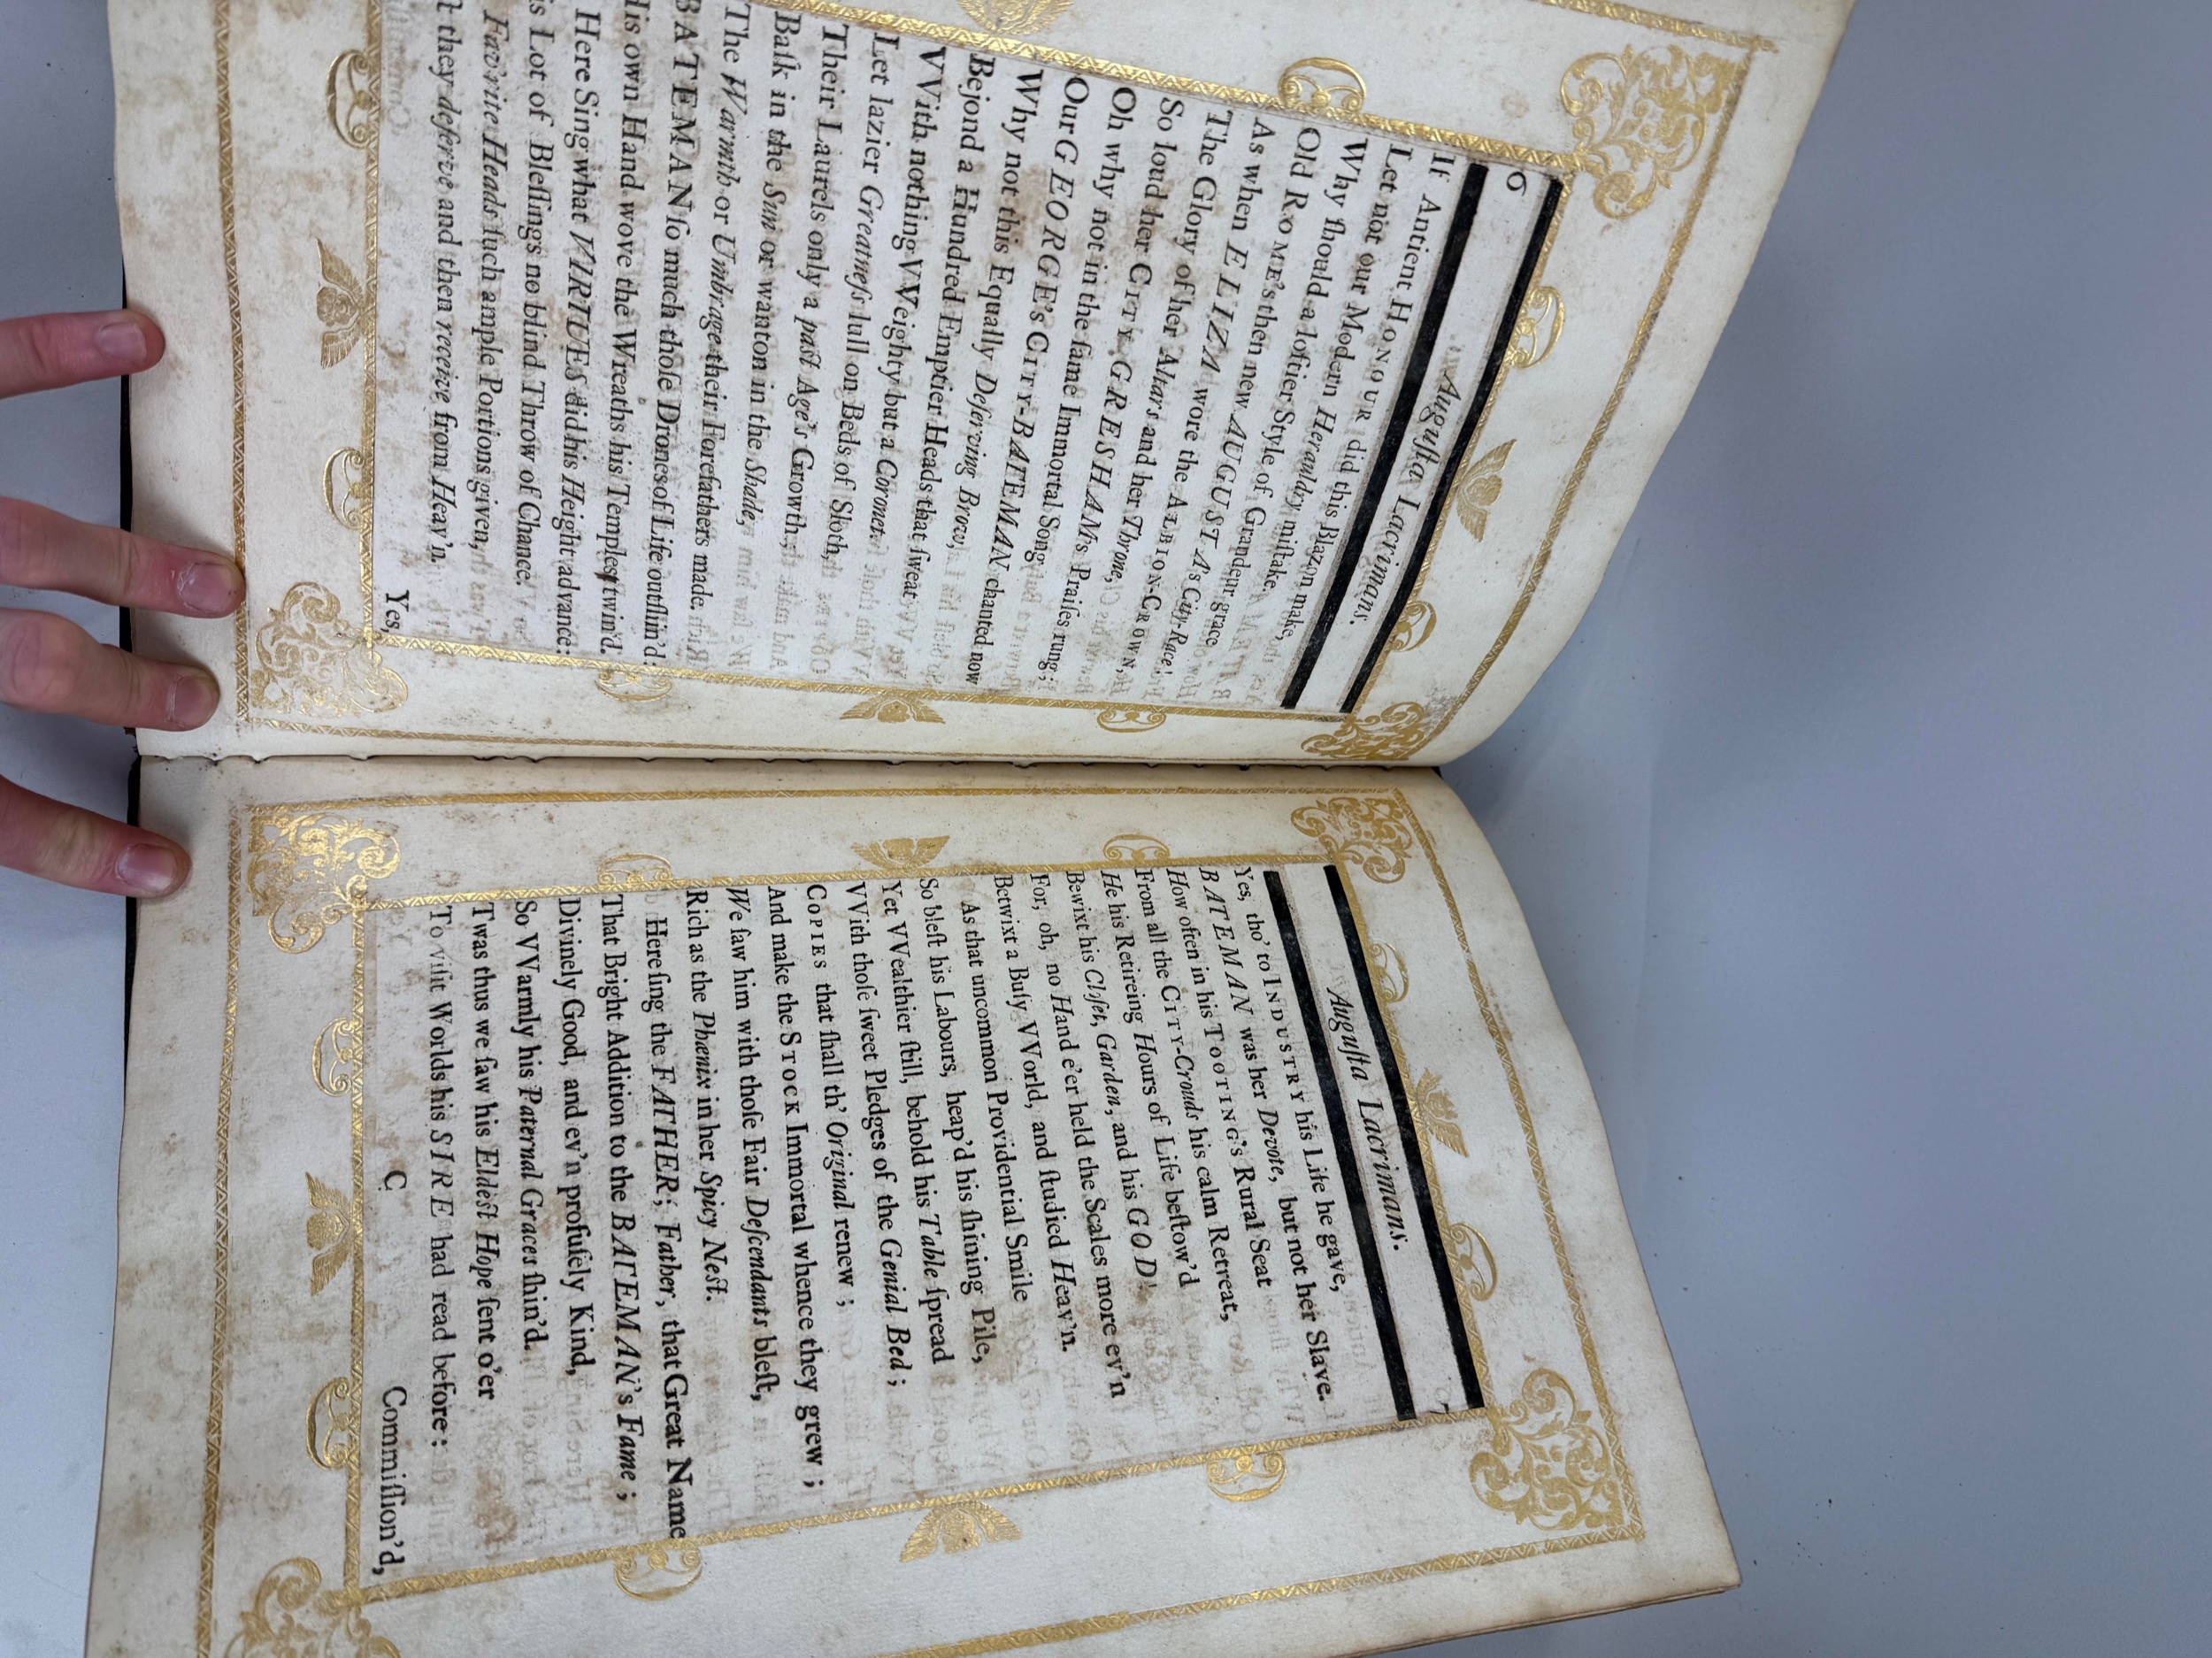 6
Auguſta Lacrimans.
If Antient HONOUR did this Blazon make,
Let not our Modern Herauldry miſtake.
Why ſhould a loftier Style of Grandeur grace
Old ROME's then new AUGUSTA's City-Race!
As when ELIZA wore the ALBION-CROWN,
The Glory of her Altars and her Throne,
So loud her CITY GRESHAM's Praiſes rung;
Oh why not in the ſame Immortal Song
Our GEORGE's CITY-BATEMAN chanted now
Why not this Equally Deſerving Brow,
Bejond a Hundred Emptier Heads that ſweat
VVith nothing VVeighty but a Coronet.
Let lazier Greatneſs lull on Beds of Sloth,
Their Laurels only a paſt Age's Growth,
Baſk in the Sun or wanton in the Shade,
The Warmth or Umbrage their Forefathers made.
BATEMAN ſo much thoſe Drones of Life outſhin'd:
His own Hand wove the Wreaths his Temples twin'd.
Here Sing what VIRTUES did his Height advance:
is Lot of Bleſſings no blind Throw of Chance.
Fav'rite Heads ſuch ample Portions given,
t they deſerve and then receive from Heav'n.
Yes,
Auguſta Lacrimans.
7
Yes, tho' to INDUSTRY his Life he gave,
BATEMAN was her Devote, but not her Slave.
How often in his TOOTING's Rural Seat
From all the CITY-Crouds his calm Retreat,
He his Retireing Hours of Life beſtow'd
Bewixt his Cloſet, Garden, and his GOD!
For, oh, no Hand e'er held the Scales more ev'n
Betwixt a Buſy VVorld, and ſtudied Heav'n.
As that uncommon Providential Smile
So bleſt his Labours, heap'd his ſhining Pile,
Yet VVealthier ſtill, behold his Table ſpread
VVith thoſe ſweet Pledges of the Genial Bed;
COPIES that ſhall th' Original renew;
And make the STOCK Immortal whence they grew;
We ſaw him with thoſe Fair Deſcendants bleſt,
Rich as the Phœnix in her Spicy Neſt.
Here ſing the FATHER; Father, that Great Name
That Bright Addition to the BATEMAN's Fame;
Divinely Good, and ev'n profuſely Kind,
So VVarmly his Paternal Graces ſhin'd.
Twas thus we ſaw his Eldeſt Hope ſent o'er
To viſit Worlds his SIRE had read before:
C
Commiſſion'd,